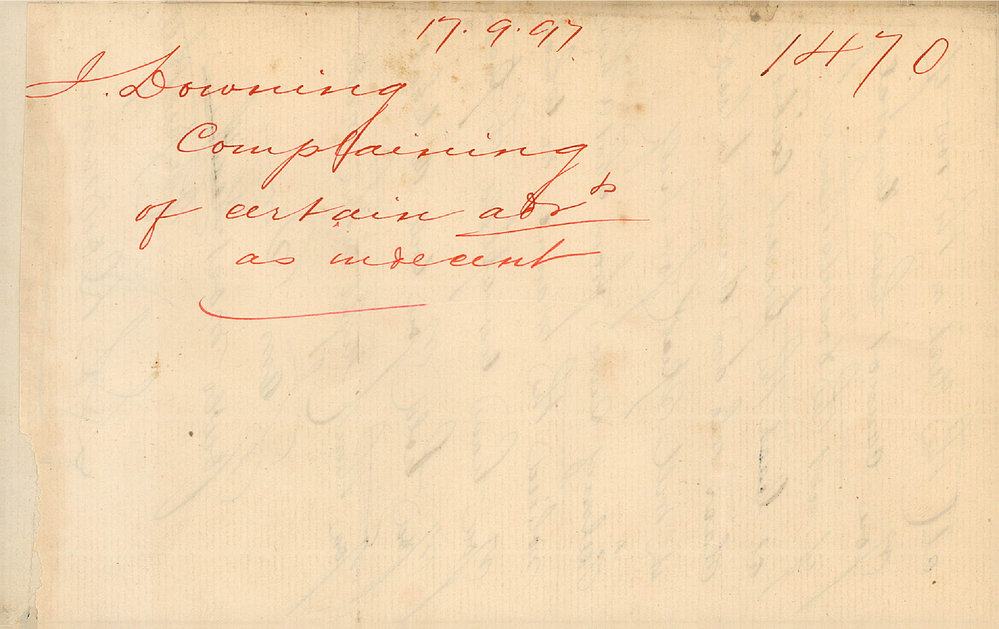 17.9.97
1470
J. Downing
Complaining
of certain adv^ts
as indecent